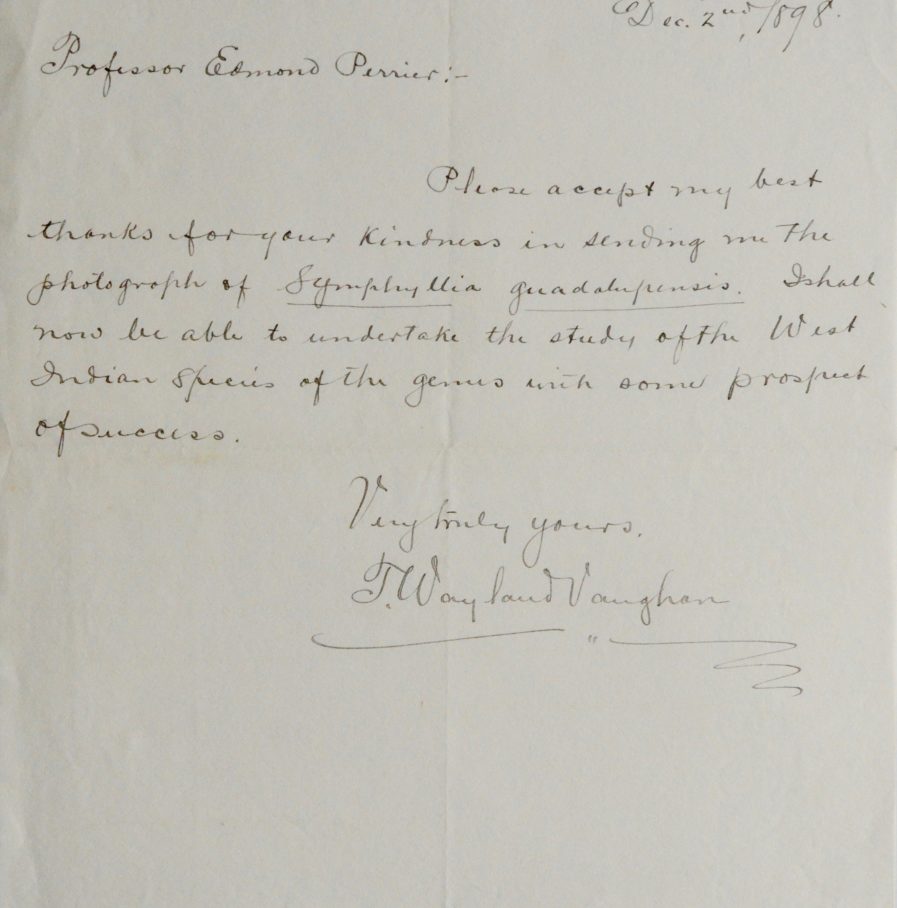 Dec. 2nd, 1898.
Professor Edmond Perrier:-
Please accept my best
thanks for your kindness in sending me the
photograph of Symphyllia guadalupensis. I shall
now be able to undertake the study of the West
Indian Species of the genus with some prospect
of success.
Very truly yours,
T. Wayland Vaughan